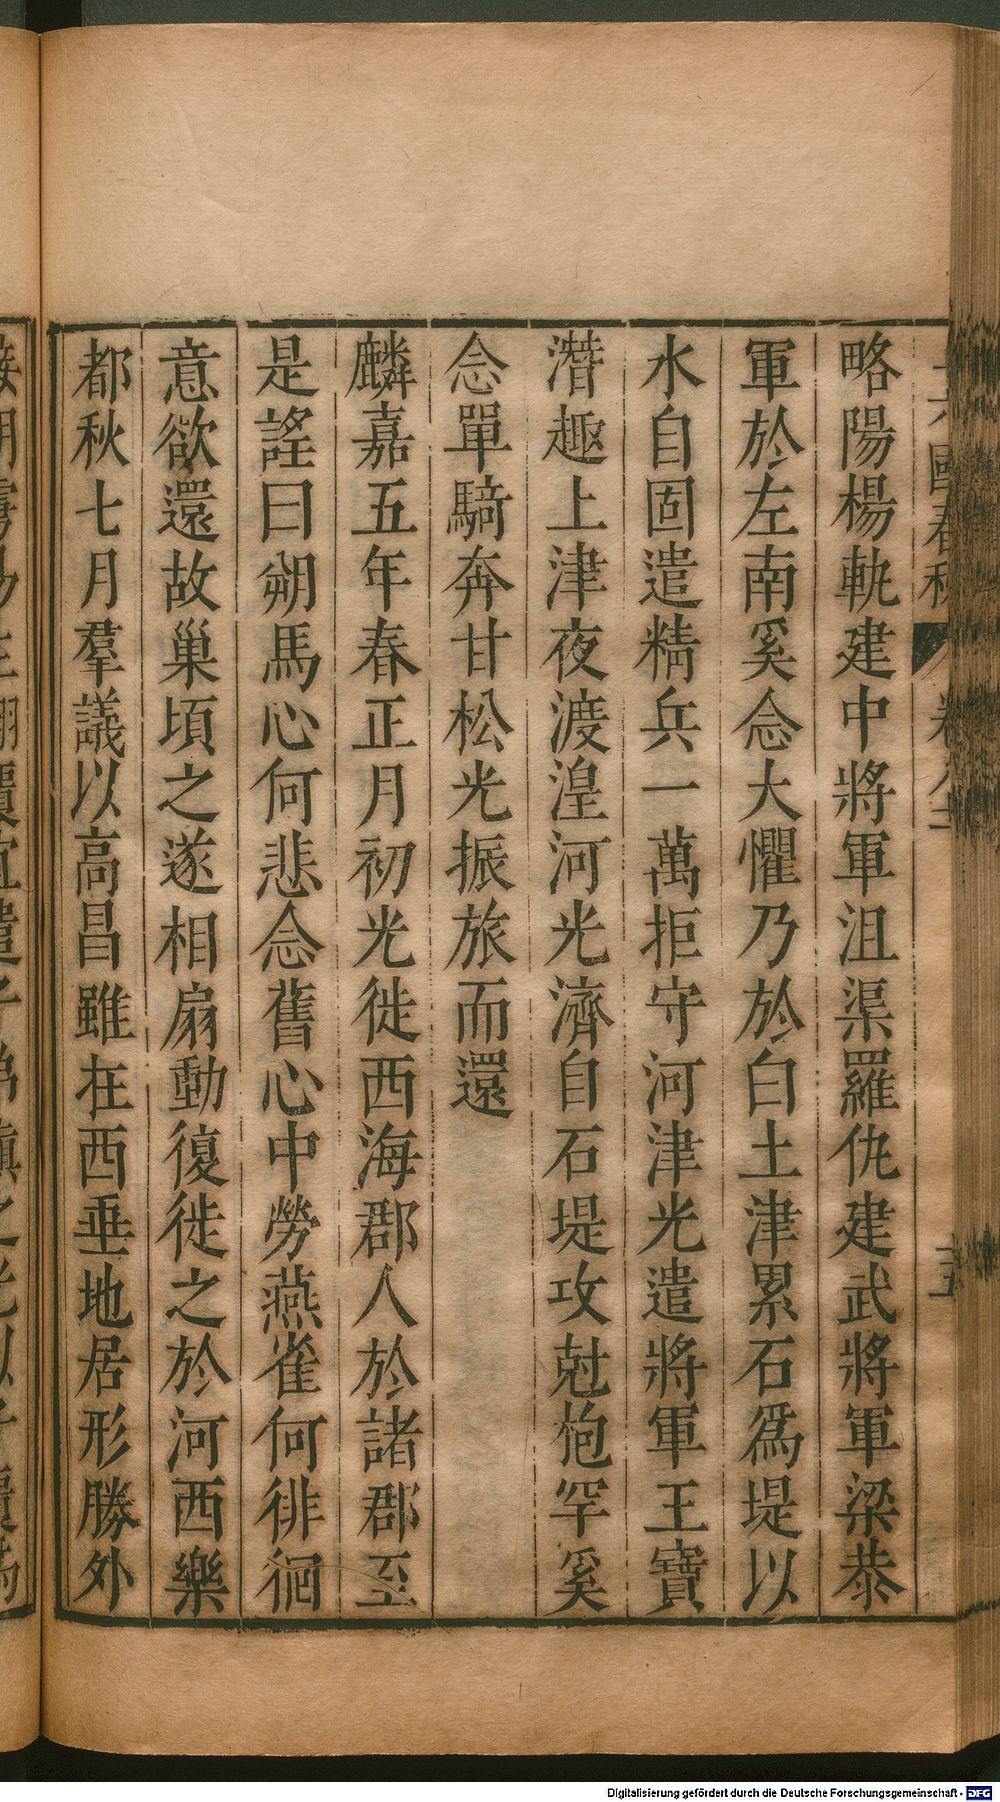 略陽楊軌建中將軍沮渠羅仇建武將軍梁恭
軍於左南奚念大懼乃於白土津累石爲堤以
水自固遣精兵一萬拒守河津光遣將軍王寶
潛趣上津夜渡湟河光濟自石堤攻尅枹罕奚
念單騎奔甘松光振旅而還
麟嘉五年春正月初光徙西海郡人於諸郡至
是謠曰朔馬心何悲念舊心中勞燕雀何徘徊
意欲還故巢頃之遂相扇動復徙之於河西樂
都秋七月羣議以高昌雖在西垂地居形勝外
Digitalisierung gefördert durch die Deutsche Forschungsgemeinschaft - DFG